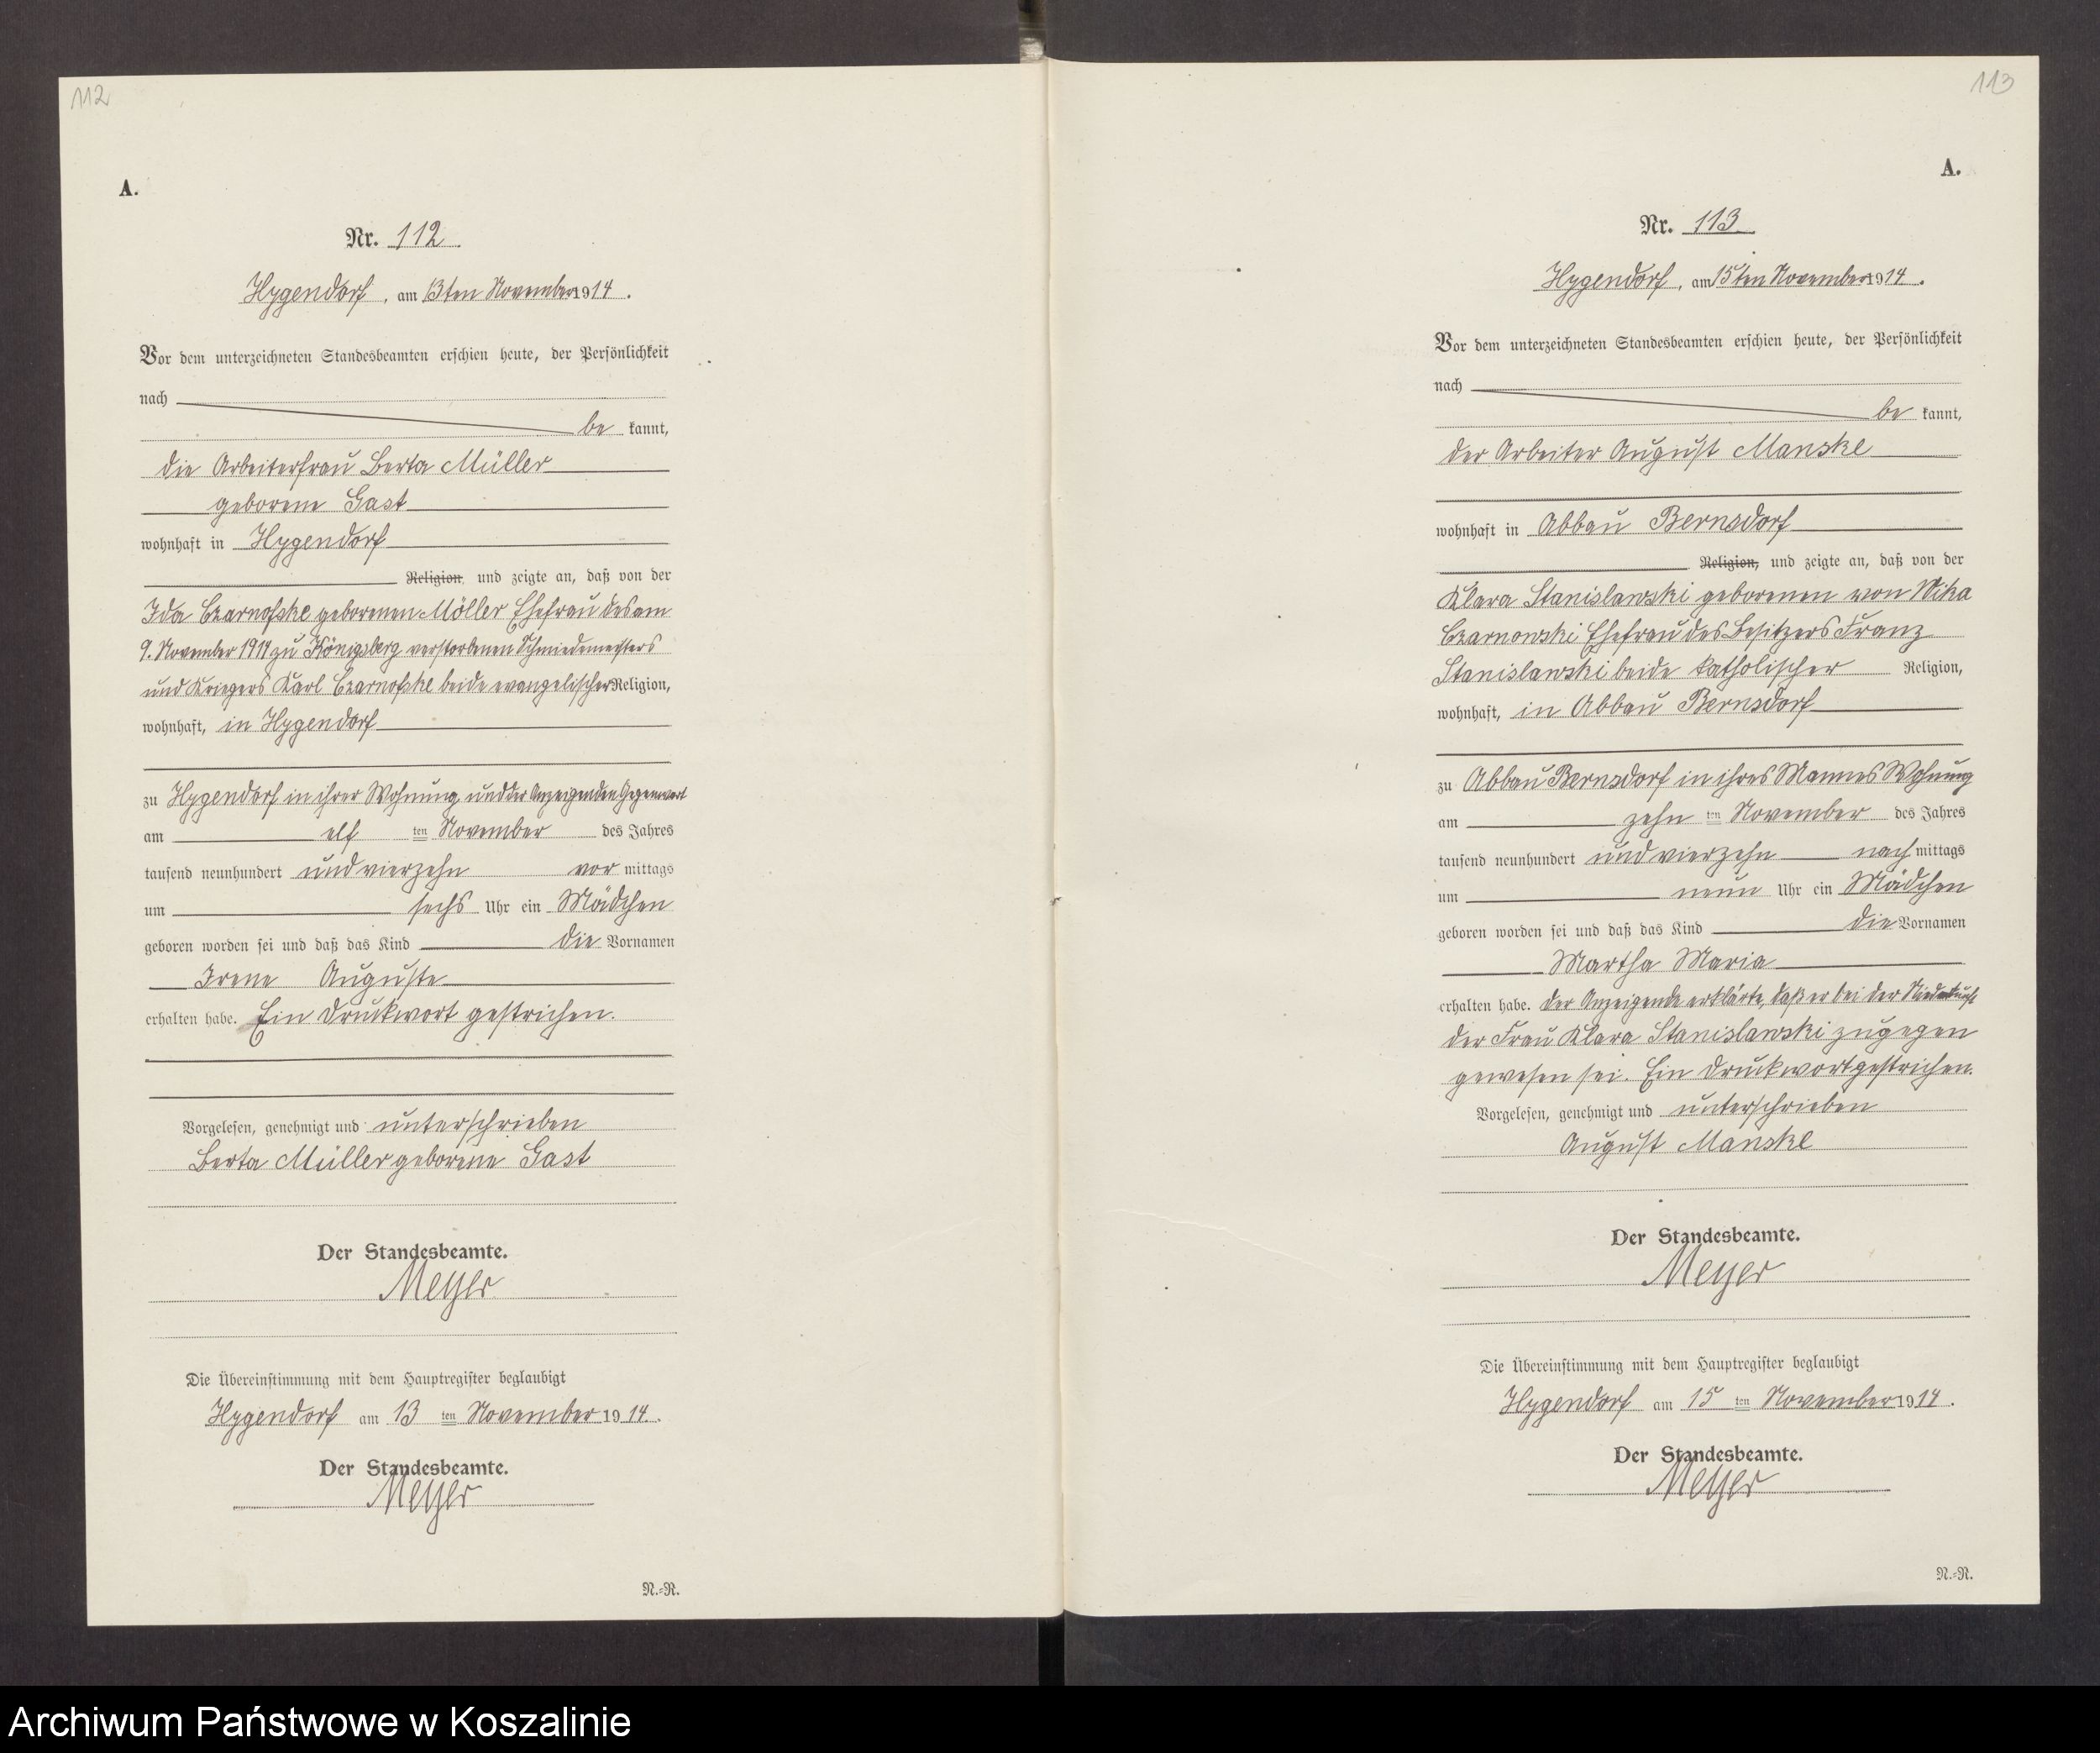 112
A.
Nr. 112.
Hygendorf, am 13ten November 1914.
Vor dem unterzeichneten Standesbeamten erschien heute, der Persönlichkeit
nach
be kannt,
die Arbeiterfrau Berta Müller
geborene Gast
wohnhaft in Hygendorf
Religion, und zeigte an, daß von der
Ida Czarnofske geborenen Möller Ehefrau des am
9. November 1914 zu Königsberg verstorbenen Schmiedemeisters
und Kriegers Karl Czarnofske beide evangelischer Religion,
wohnhaft, in Hygendorf
zu Hygendorf in ihrer Wohnung und der Anzeigenden Gegenwart
am elf ten November des Jahres
tausend neunhundert und vierzehn vor mittags
um sechs Uhr ein Mädchen
geboren worden sei und daß das Kind die Vornamen
Irene Auguste
erhalten habe. Ein Druckwort gestrichen.
Vorgelesen, genehmigt und unterschrieben
Berta Müller geborene Gast
Der Standesbeamte.
Meyer
Die Übereinstimmung mit dem Hauptregister beglaubigt
Hygendorf am 13 ten November 1914.
Der Standesbeamte.
Meyer
N.-R.
113
A.
Nr. 113.
Hygendorf, am 15ten November 1914.
Vor dem unterzeichneten Standesbeamten erschien heute, der Persönlichkeit
nach
be kannt,
der Arbeiter August Manske
wohnhaft in Abbau Bernsdorf
Religion, und zeigte an, daß von der
Klara Stanislawski geborenen von Wika
Czarnowski Ehefrau des Besitzers Franz
Stanislawski beide katholischer Religion,
wohnhaft, in Abbau Bernsdorf
zu Abbau Bernsdorf in ihres Mannes Wohnung
am zehn ten November des Jahres
tausend neunhundert und vierzehn nach mittags
um neun Uhr ein Mädchen
geboren worden sei und daß das Kind die Vornamen
Martha Maria
erhalten habe. Der Anzeigende erklärte, daß er bei der Niederkunft
der Frau Klara Stanislawski zugegen
gewesen sei. Ein Druckwort gestrichen.
Vorgelesen, genehmigt und unterschrieben
August Manske
Der Standesbeamte.
Meyer
Die Übereinstimmung mit dem Hauptregister beglaubigt
Hygendorf am 15 ten November 1914.
Der Standesbeamte.
Meyer
N.-R.
Archiwum Państwowe w Koszalinie